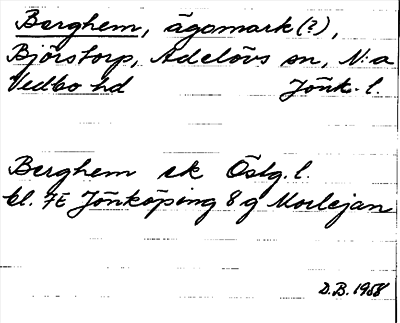 Berghem, ägomark (?),
Björstorp, Adelövs sn, N:a
Vedbo hd Jönk. l.
Berghem ek Östg. l.
bl. 7E Jönköping 8 g Morlejan
D.B. 1968